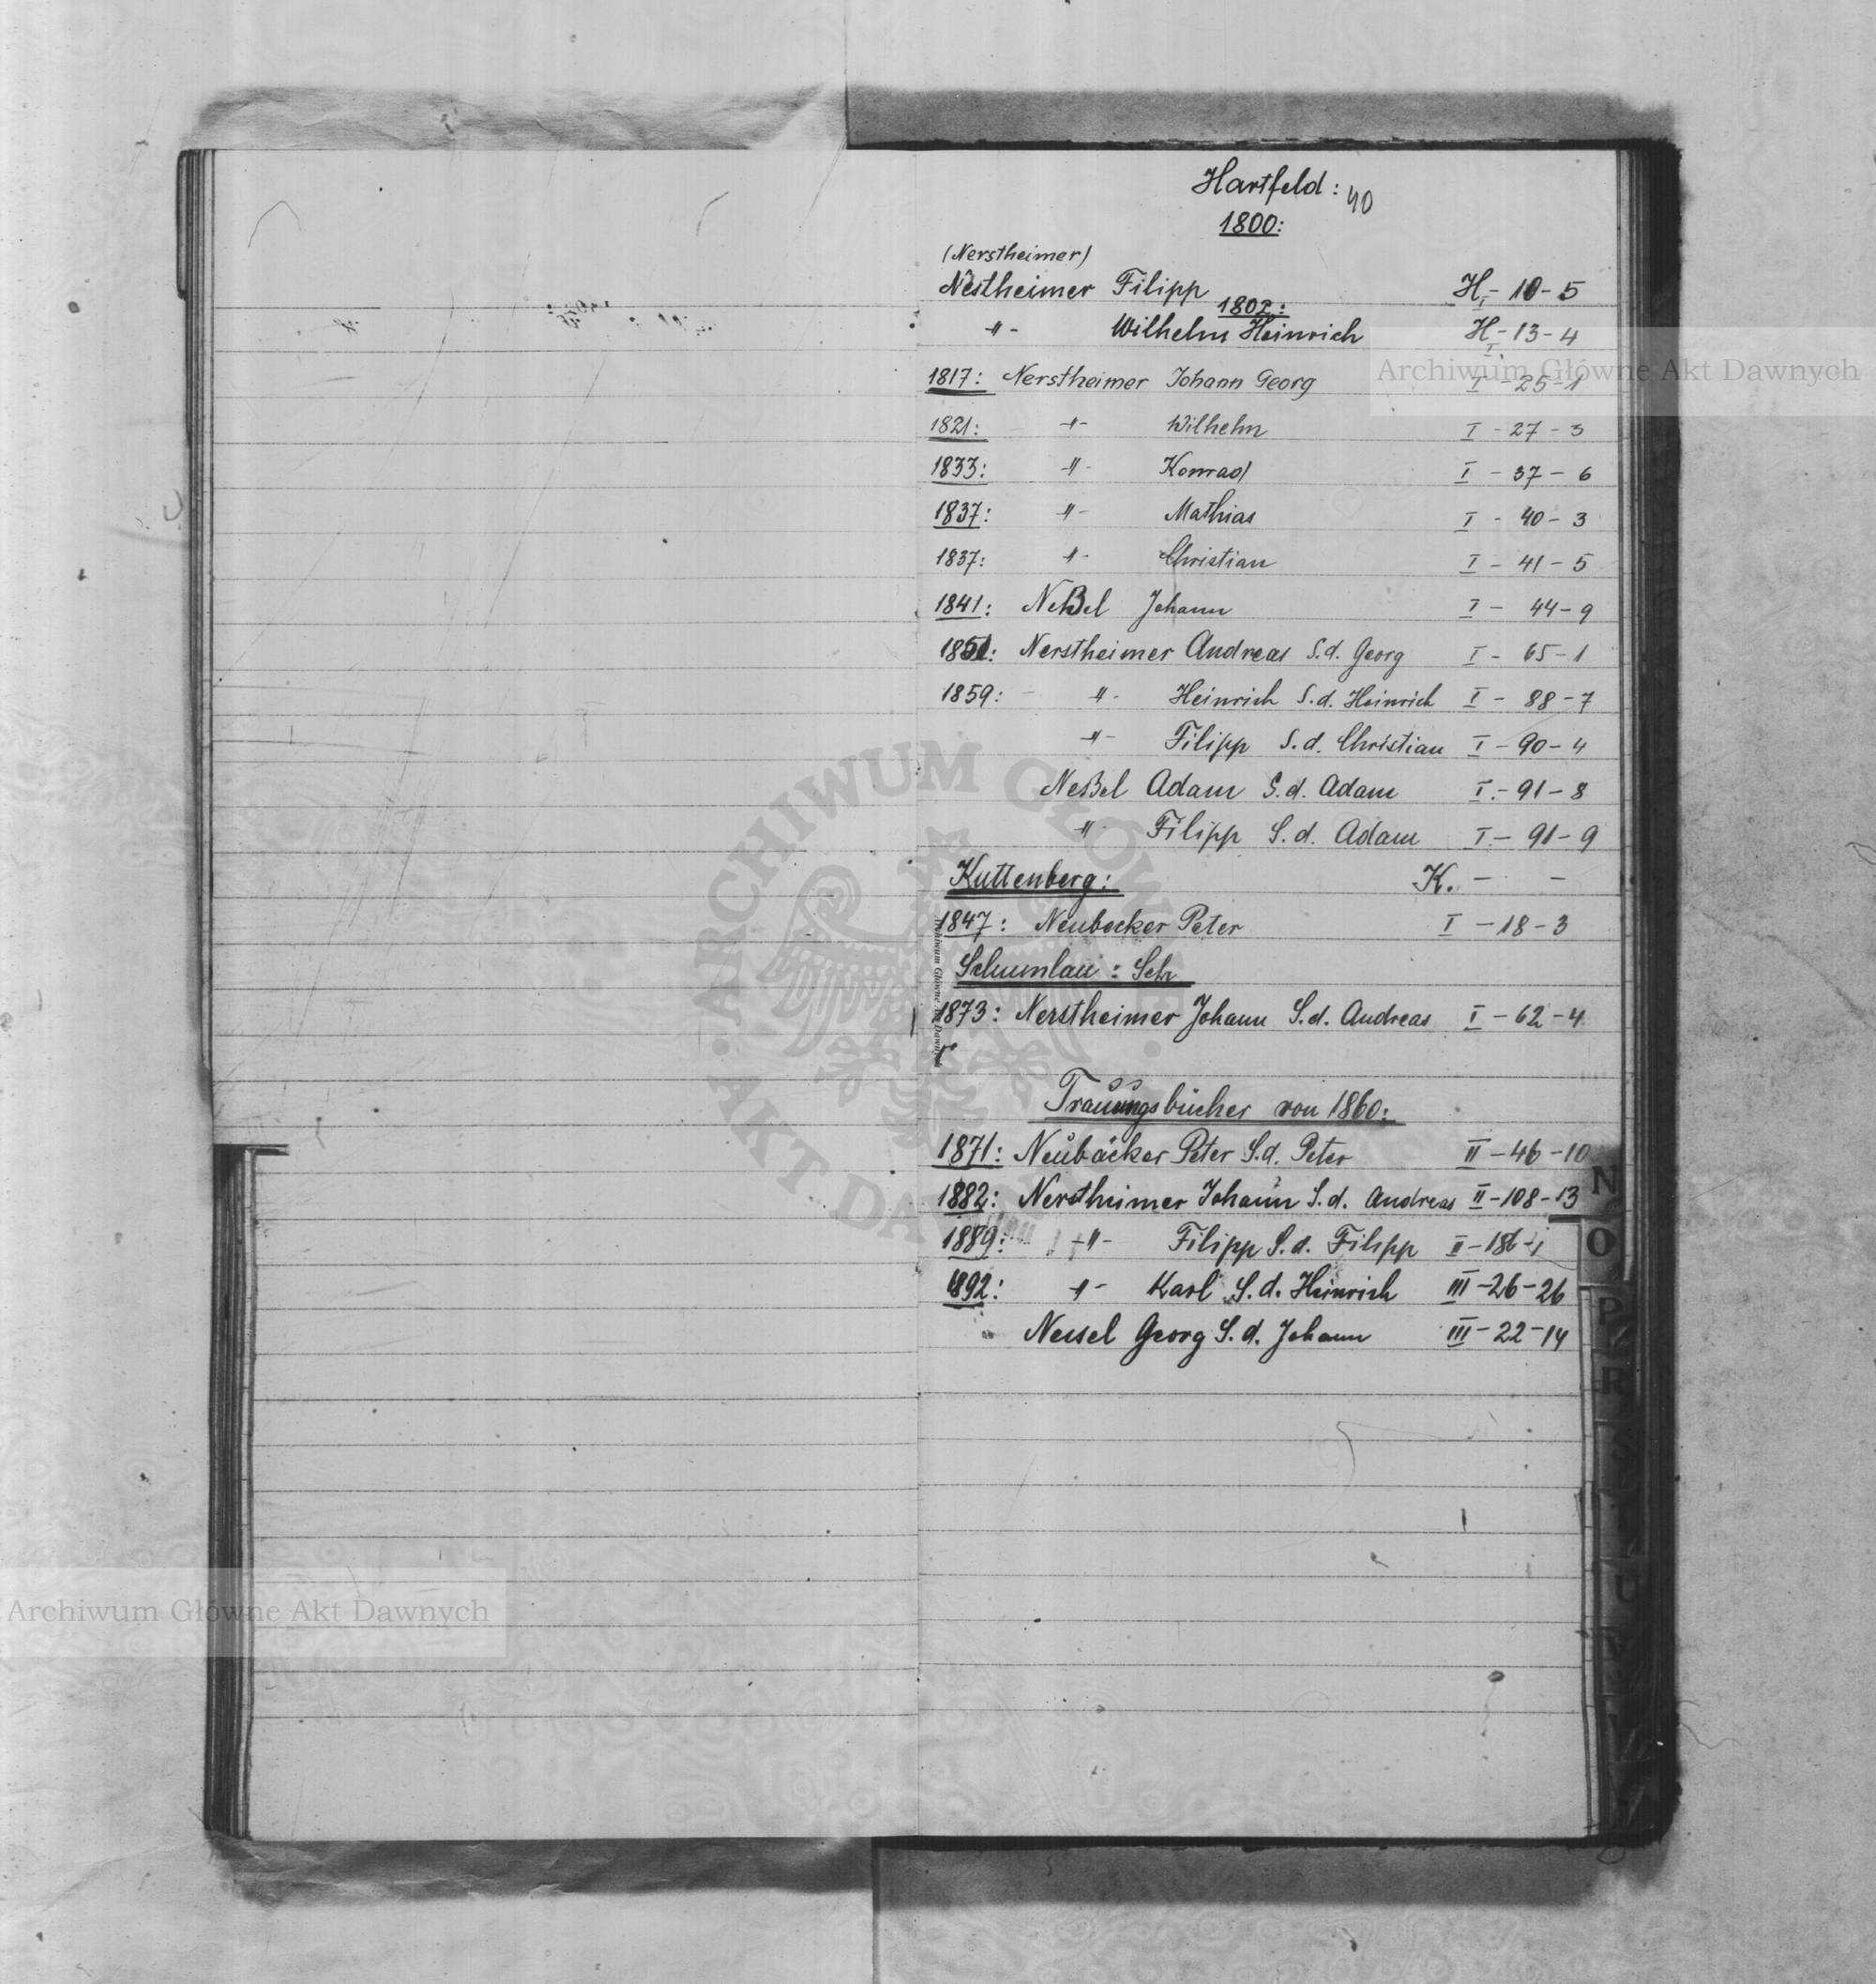 Hartfeld: 40
1800:
(Nerstheimer)
Nestheimer Filipp H. I - 10 - 5
1802:
-"- Wilhelm Heinrich H. I - 13 - 4
Archiwum Główne Akt Dawnych
1817: Nerstheimer Johann Georg I - 25 - 1
1821: -"- Wilhelm I - 27 - 3
1833: -"- Konrad I - 37 - 6
1837: -"- Mathias I - 40 - 3
1837: -"- Christian I - 41 - 5
1841: Neßel Johann I - 44 - 9
1851: Nerstheimer Andreas S.d. Georg I - 65 - 1
1859: -"- Heinrich S.d. Heinrich I - 88 - 7
-"- Filipp S.d. Christian I - 90 - 4
Neßel Adam S.d. Adam I - 91 - 8
-"- Filipp S.d. Adam I - 91 - 9
Kuttenberg: K. - -
1847: Neubecker Peter I - 18 - 3
Schumlau: Sch
1873: Nerstheimer Johann S.d. Andreas I - 62 - 4
Trauungsbücher von 1860:
1871: Neubäcker Peter S.d. Peter II - 46 - 10
1882: Nerstheimer Johann S.d. Andreas II - 108 - 13
1889: -"- Filipp S.d. Filipp II - 186 - 1
1892: -"- Karl S.d. Heinrich III - 26 - 26
Nessel Georg S.d. Johann III - 22 - 14
N
O
P
R
S
T
U
ARCHIWUM GŁÓWNE AKT DAWNYCH
Archiwum Główne Akt Dawnych
Archiwum Główne Akt Dawnych